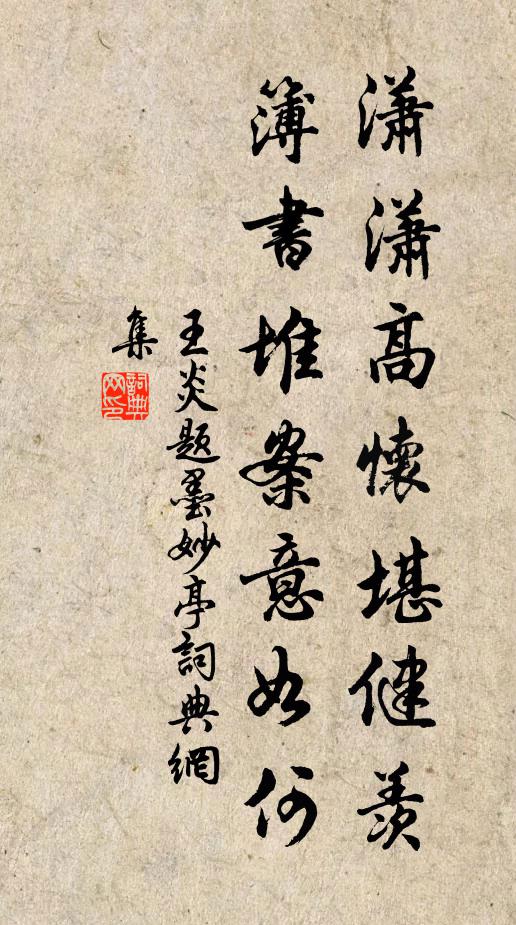 瀟瀟高懷堪健羨
簿書堆案意如何
王炎題墨妙亭詞典網
集
詞典网印